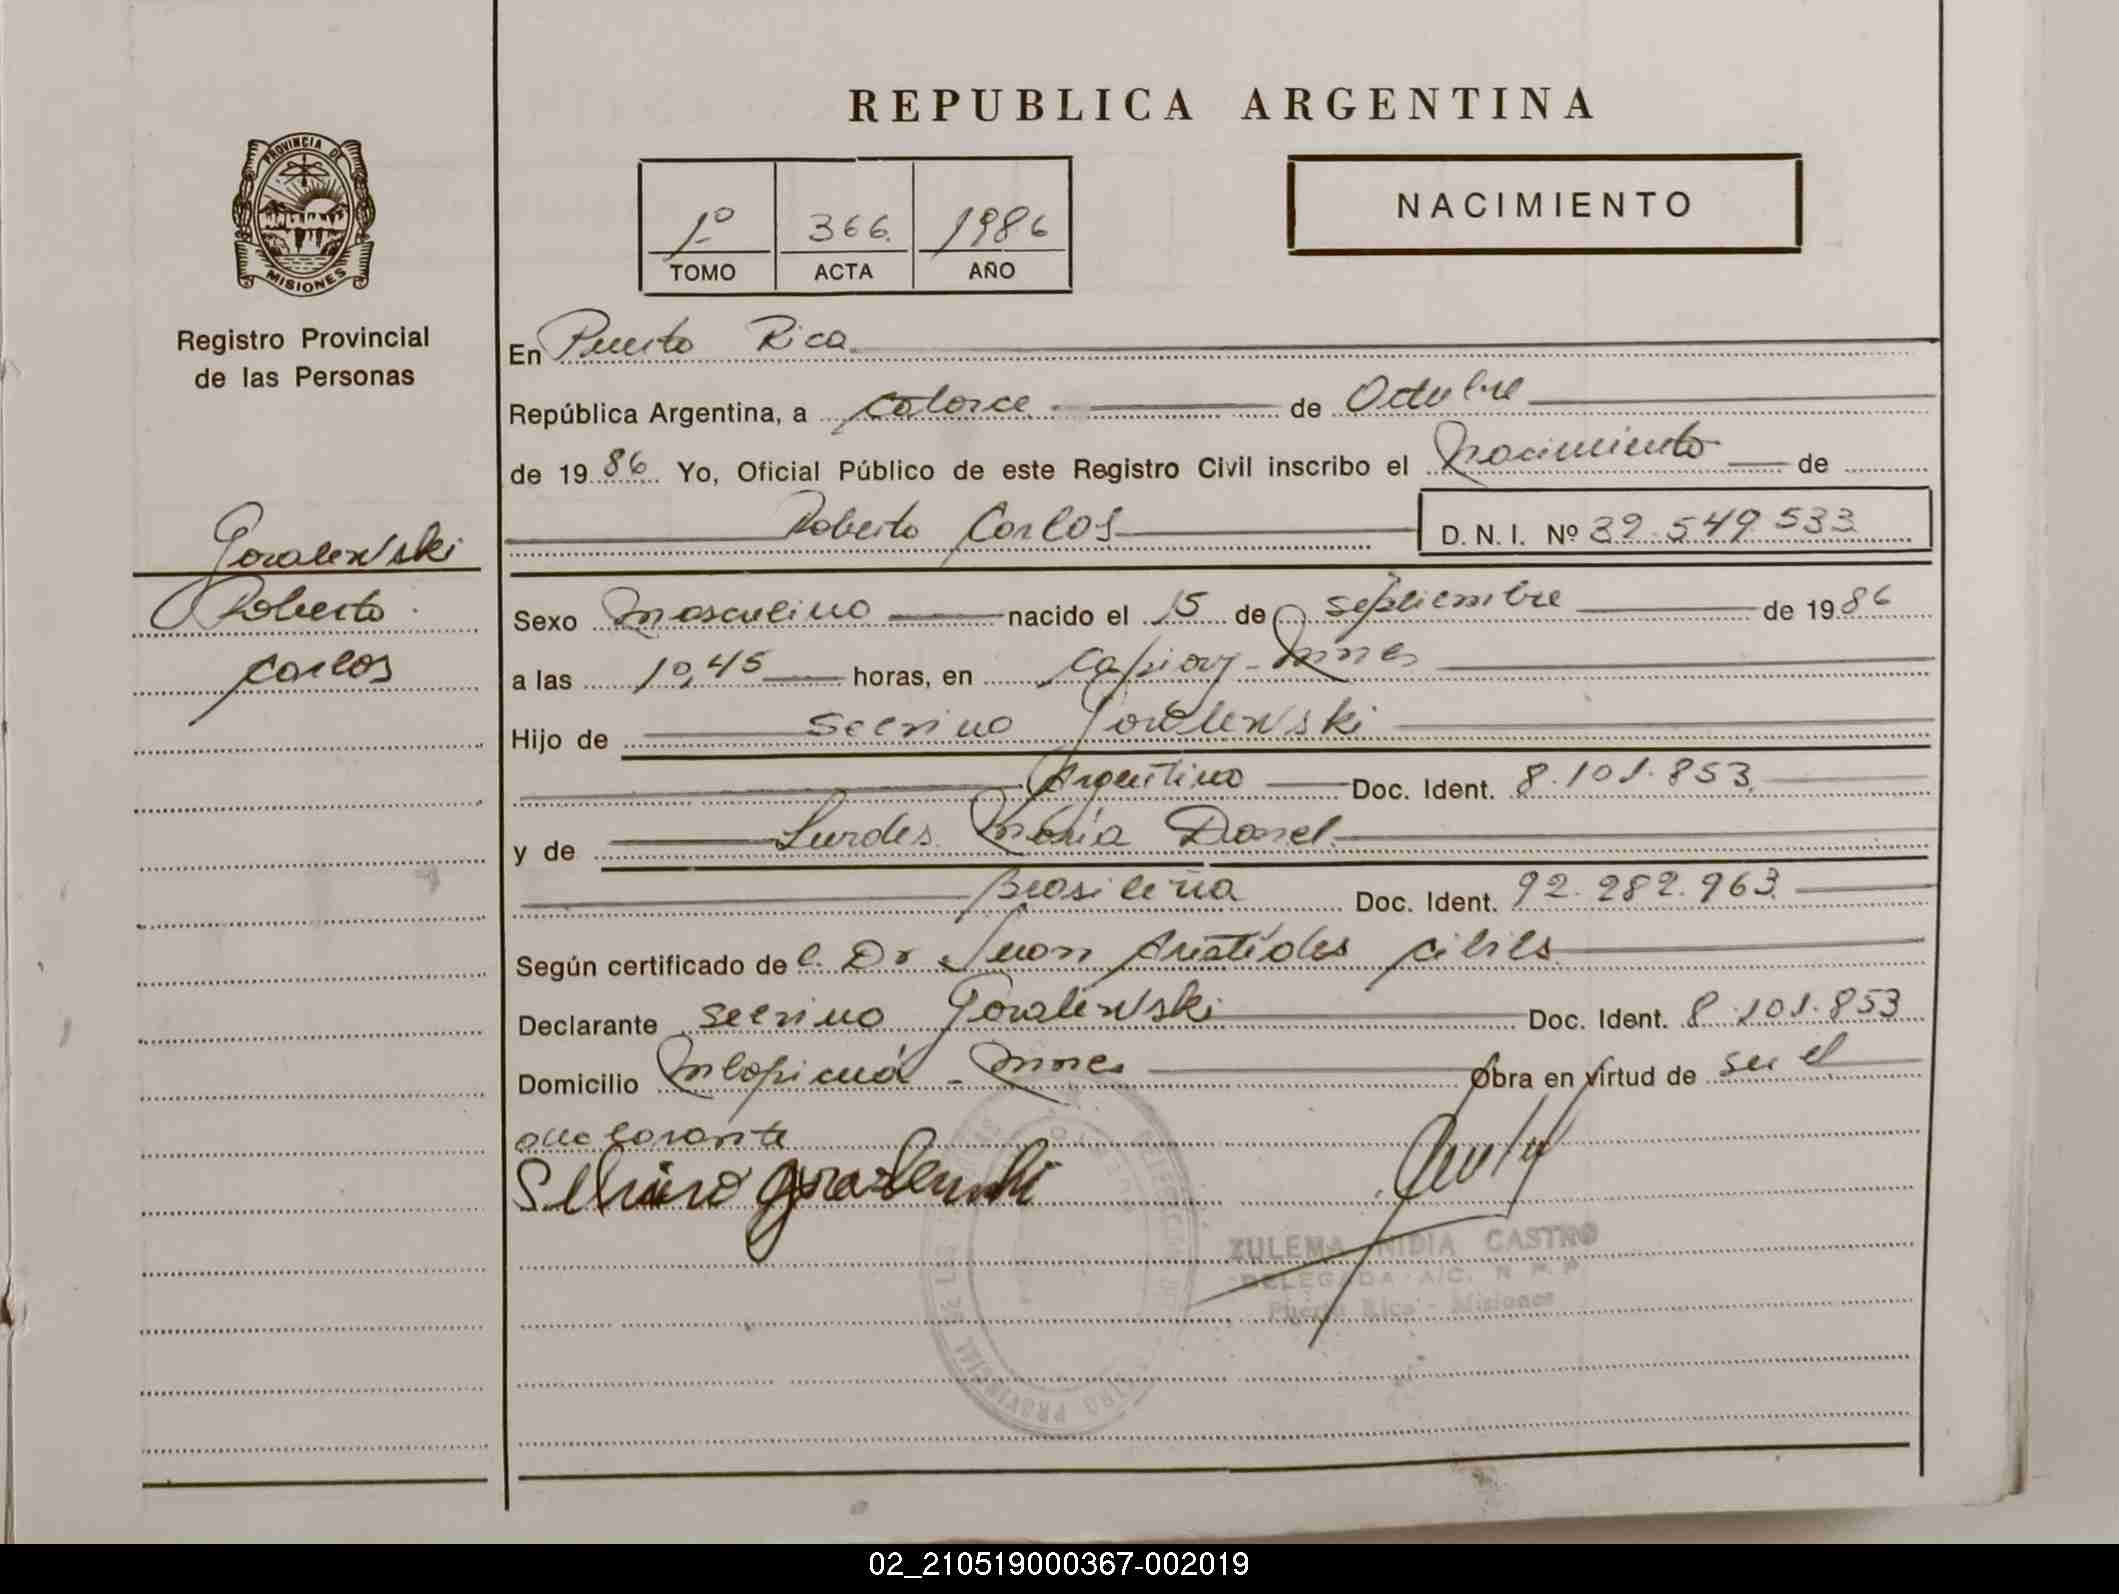 REPUBLICA ARGENTINA
PROVINCIA DE
MISIONES
Registro Provincial
de las Personas
1º 366 1986
TOMO ACTA AÑO
NACIMIENTO
En Puerto Rico
República Argentina, a catorce de Octubre
de 1986 Yo, Oficial Público de este Registro Civil inscribo el Nacimiento de
Roberto Carlos D. N. I. Nº 32.549.533
Goralewski
Roberto
Carlos
Sexo Masculino nacido el 15 de Septiembre de 1986
a las 10,45 horas, en Capiovy - Mnes
Hijo de Selvino Goralewski
Argentino Doc. Ident. 8.101.853
y de Lurdes María
Brasileña Doc. Ident. 92.282.963
Según certificado del Dr Juan Arístides
Declarante Selvino Goralewski Doc. Ident. 8.101.853
Domicilio Mnes Obra en virtud de su el
declarante
Selvino Goralewski
ZULEMA NIDIA CASTRO
DELEGADA A/C.
Puerto Rico - Misiones
02_210519000367-002019